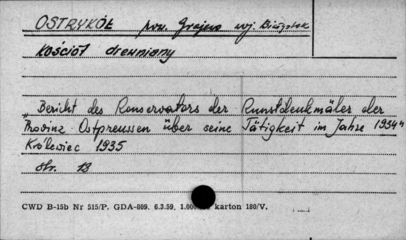 OSTRYKÓŁ pow. Grajewo woj: Białystok
Kościół drewniany
"Bericht des Konservators der Kunstdenkmäler der
Provinz Ostpreussen über seine Tätigkeit im Jahre 1934"
Królewiec 1935
str. 13
CWD B-15b Nr 515/P. GDA-889. 6.3.59. 1.000 karton 180/V.